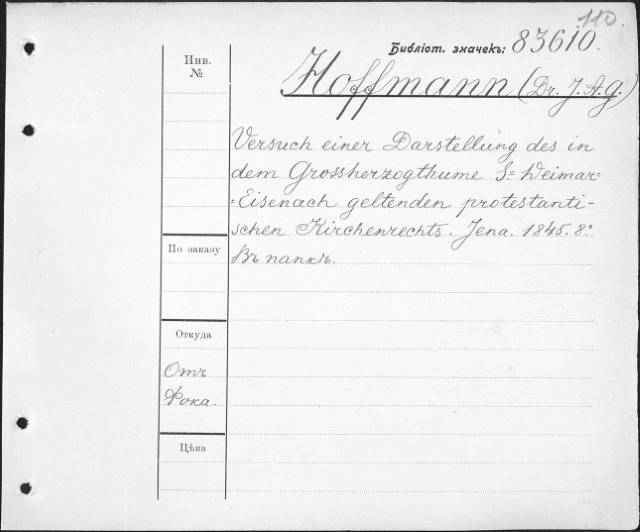 110.
Библiот. значекъ: 83610.
Инв.
№
Hoffmann (Dr. J. A. G.)
Versuch einer Darstellung des in
dem Grossherzogthume S= Weimar=
=Eisenach geltenden protestanti-
schen Kirchenrechts. Jena. 1845. 8.°
Въ папкѣ.
По заказу
Откуда
Отъ
Фока.
Цѣна